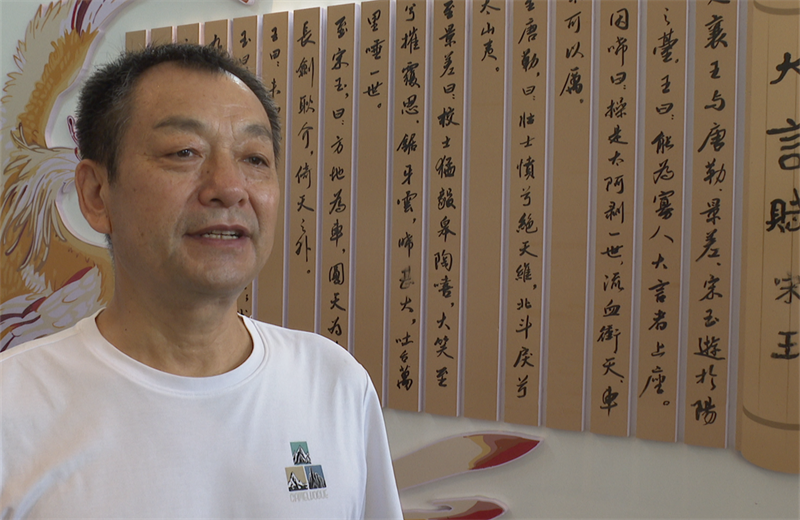 大言賦 宋王
襄王与唐勒、景差、宋玉遊於陽
之臺。王曰:能為寡人大言者上座。
因唏曰:操是大阿剥一世,流血衝天,車
可以厲。
至唐勒,曰:壯士憤兮絕天維,北斗戾兮
太山夷。
至景差曰:校士猛毅皋陶嘻,大笑至
兮摧覆思。鋸牙雲,唏甚大,吐舌萬
里唾一世。
至宋玉,曰:方地為車,圓天為
長劍耿介,倚天之外。
王曰:未
玉曰
九